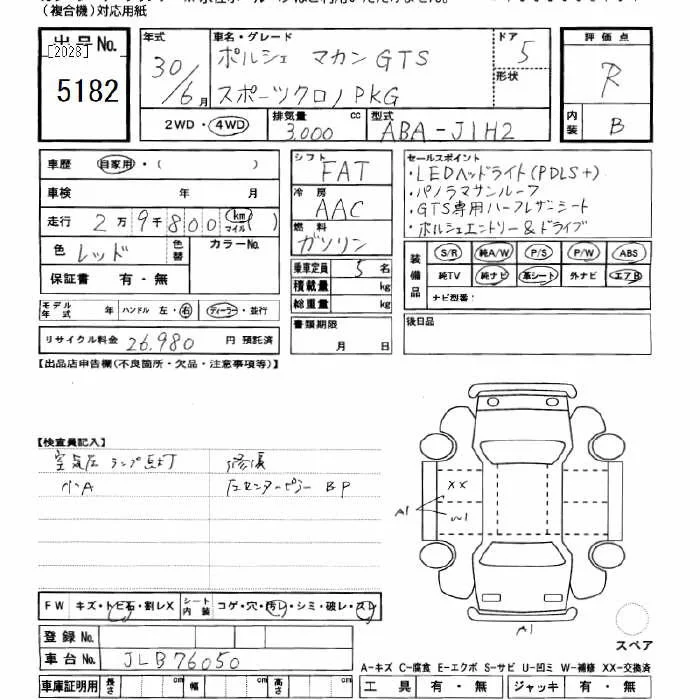 (複合機)対応用紙
出品No.
[2028]
5182
年式 車名・グレード ドア 評価点
30/6月 ポルシェ マカンGTS 5 R
形状
スポーツクロノPKG
2WD・4WD 排気量 3,000 cc 型式 ABA-J1H2 内装 B
車歴 自家用・( )
車検 年 月
走行 2万9千800 km マイル ( )
色 レッド 色替 カラーNo.
保証書 有・無
モデル年式 年 ハンドル 左・右 ディーラー・並行
リサイクル料金 26,980 円 預託済
シフト FAT
冷房 AAC
燃料 ガソリン
乗車定員 5名
積載量 kg
総重量 kg
書類期限
月 日
セールスポイント
・LEDヘッドライト(PDLS+)
・パノラマサンルーフ
・GTS専用ハーフレザーシート
・ポルシェエントリー&ドライブ
装備品 S/R 純A/W P/S P/W ABS
純TV 純ナビ 革シート 外ナビ エアB
ナビ型番:
後日品
【出品店申告欄(不良箇所・欠品・注意事項等)】
【検査員記入】
空気圧 ランプ点灯 修復
左センターピラー BP
XX
A1 W1
A1
FW キズ・トビ石・割レX シート内装 コゲ・穴・汚レ・シミ・破レ・スレ
登録No.
車台No. JLB76050
車庫証明用 長さ cm 幅 cm 高さ cm
スペア
A-キズ C-腐食 E-エクボ S-サビ U-凹ミ W-補修 XX-交換済
工具 有・無 ジャッキ 有・無